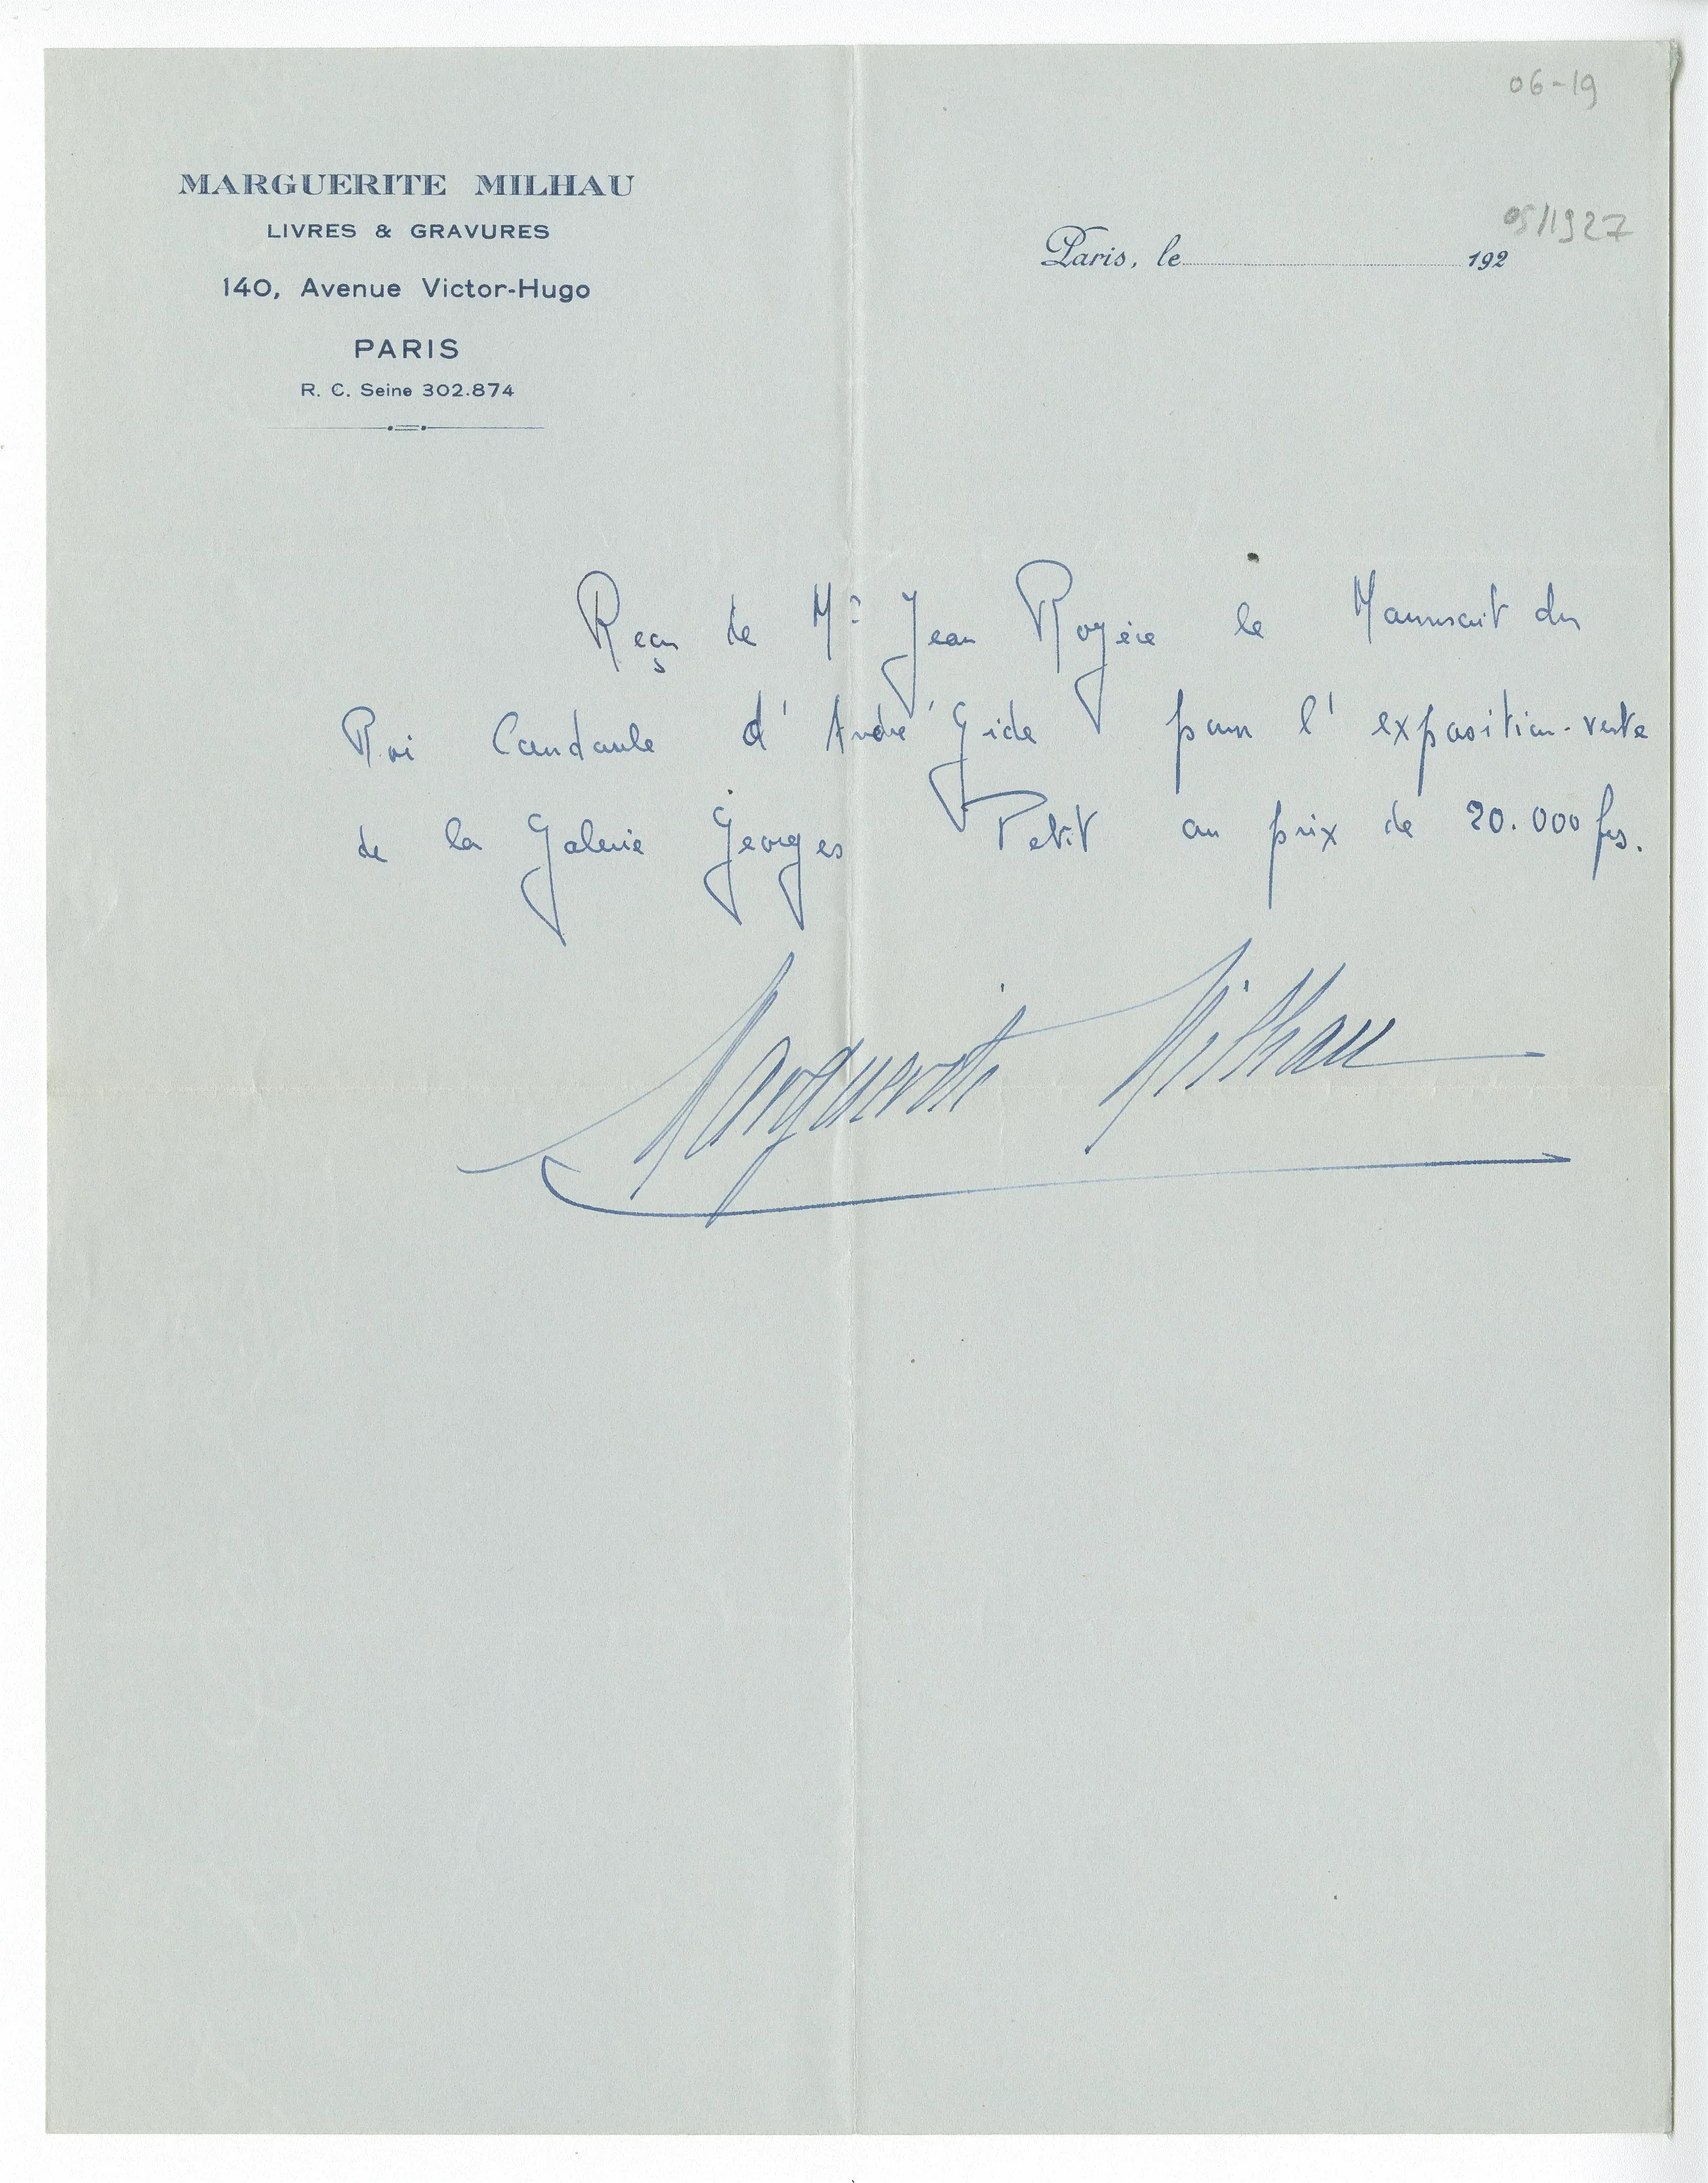 06-19
MARGUERITE MILHAU
LIVRES & GRAVURES
140, Avenue Victor-Hugo
PARIS
R. C. Seine 302.874
05/1927
Paris, le 192
Reçu de Mr Jean Royère le Manuscrit du
Roi Candaule d'André Gide pour l'exposition-vente
de la Galerie Georges Petit au prix de 20.000 frs.
Marguerite Milhau